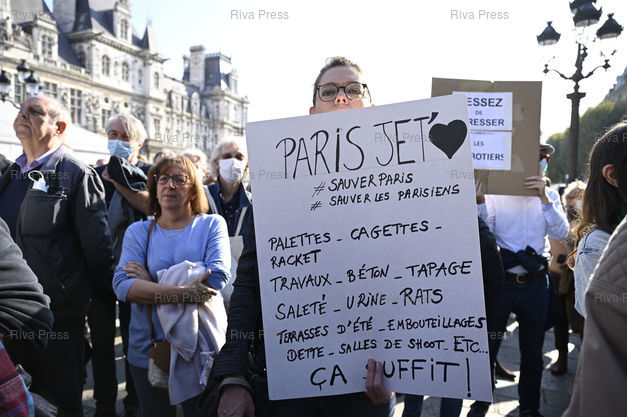 Riva Press
Riva Press
Riva Press
PARIS JET'♥
#SAUVERPARIS
# SAUVER LES PARISIENS
PALETTES - CAGETTES -
RACKET
TRAVAUX - BÉTON - TAPAGE
SALETÉ - URINE - RATS
TERRASSES D'ÉTÉ - EMBOUTEILLAGES
DETTE - SALLES DE SHOOT - ETC...
ÇA SUFFIT!
ESSEZ
DE
RESSER
LES
ROTIERS
Riva Press
Riva Press
Riva Press
Riva Press
Riva Press
Riva Press
Riva Press
Riva Press
Riva Press
Riva Press
Riva Press
Riva Press